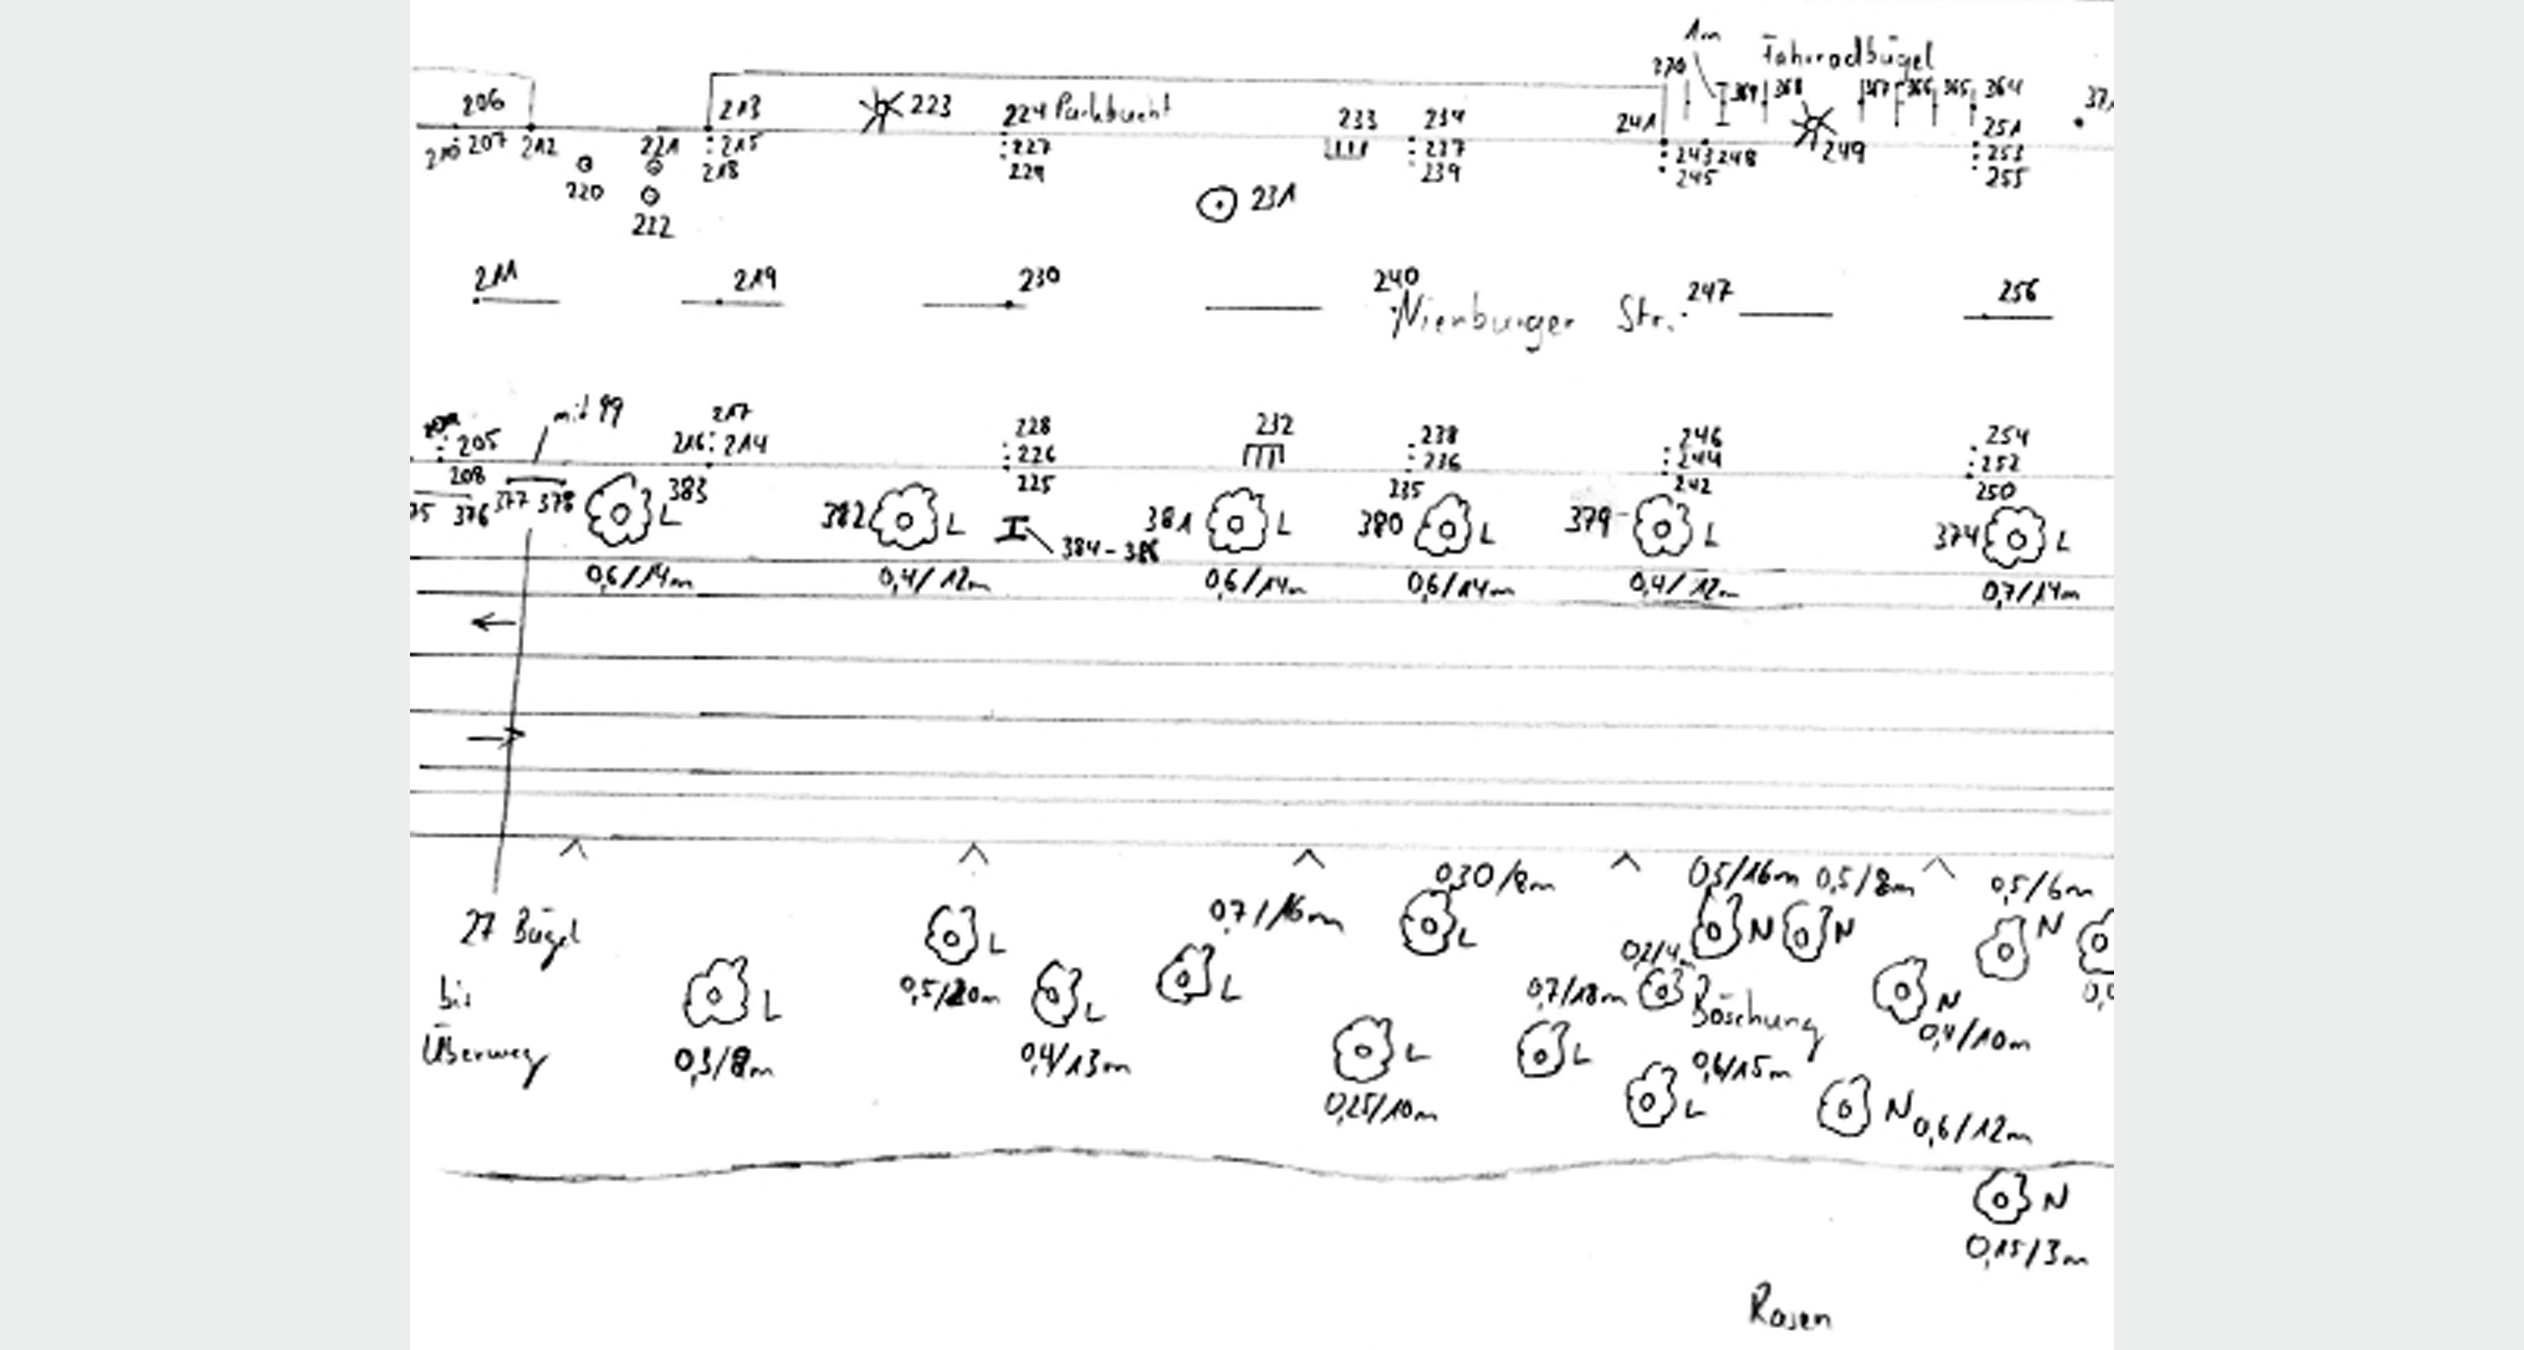 1m Fahrradbügel
206 213 223 224 Parkbucht 233 234 241 370 369 368 367 366 365 364
210 207 212 221 215 227 237 243 248 249 251
218 229 239 245 253
220 231 255
222
211 219 230 240 247 256
Nienburger Str.
mit 99
205 217 228 232 238 246 254
216 214 226 236 244 252
208 225 235 242 250
376 377 378 383 L 382 L 384-386 381 L 380 L 379 L 374 L
0,6/14m 0,4/12m 0,6/14m 0,6/14m 0,4/12m 0,7/14m
27 Bügel
bis
Überweg
0,30/8m 0,5/16m 0,5/8m 0,5/6m
L 0,7/16m L N N N
L 0,5/20m L L 0,7/18m 0,2/4m Böschung N
0,3/8m 0,4/13m L L 0,4/10m
0,25/10m L 0,6/15m N 0,6/12m
N
0,15/3m
Rasen